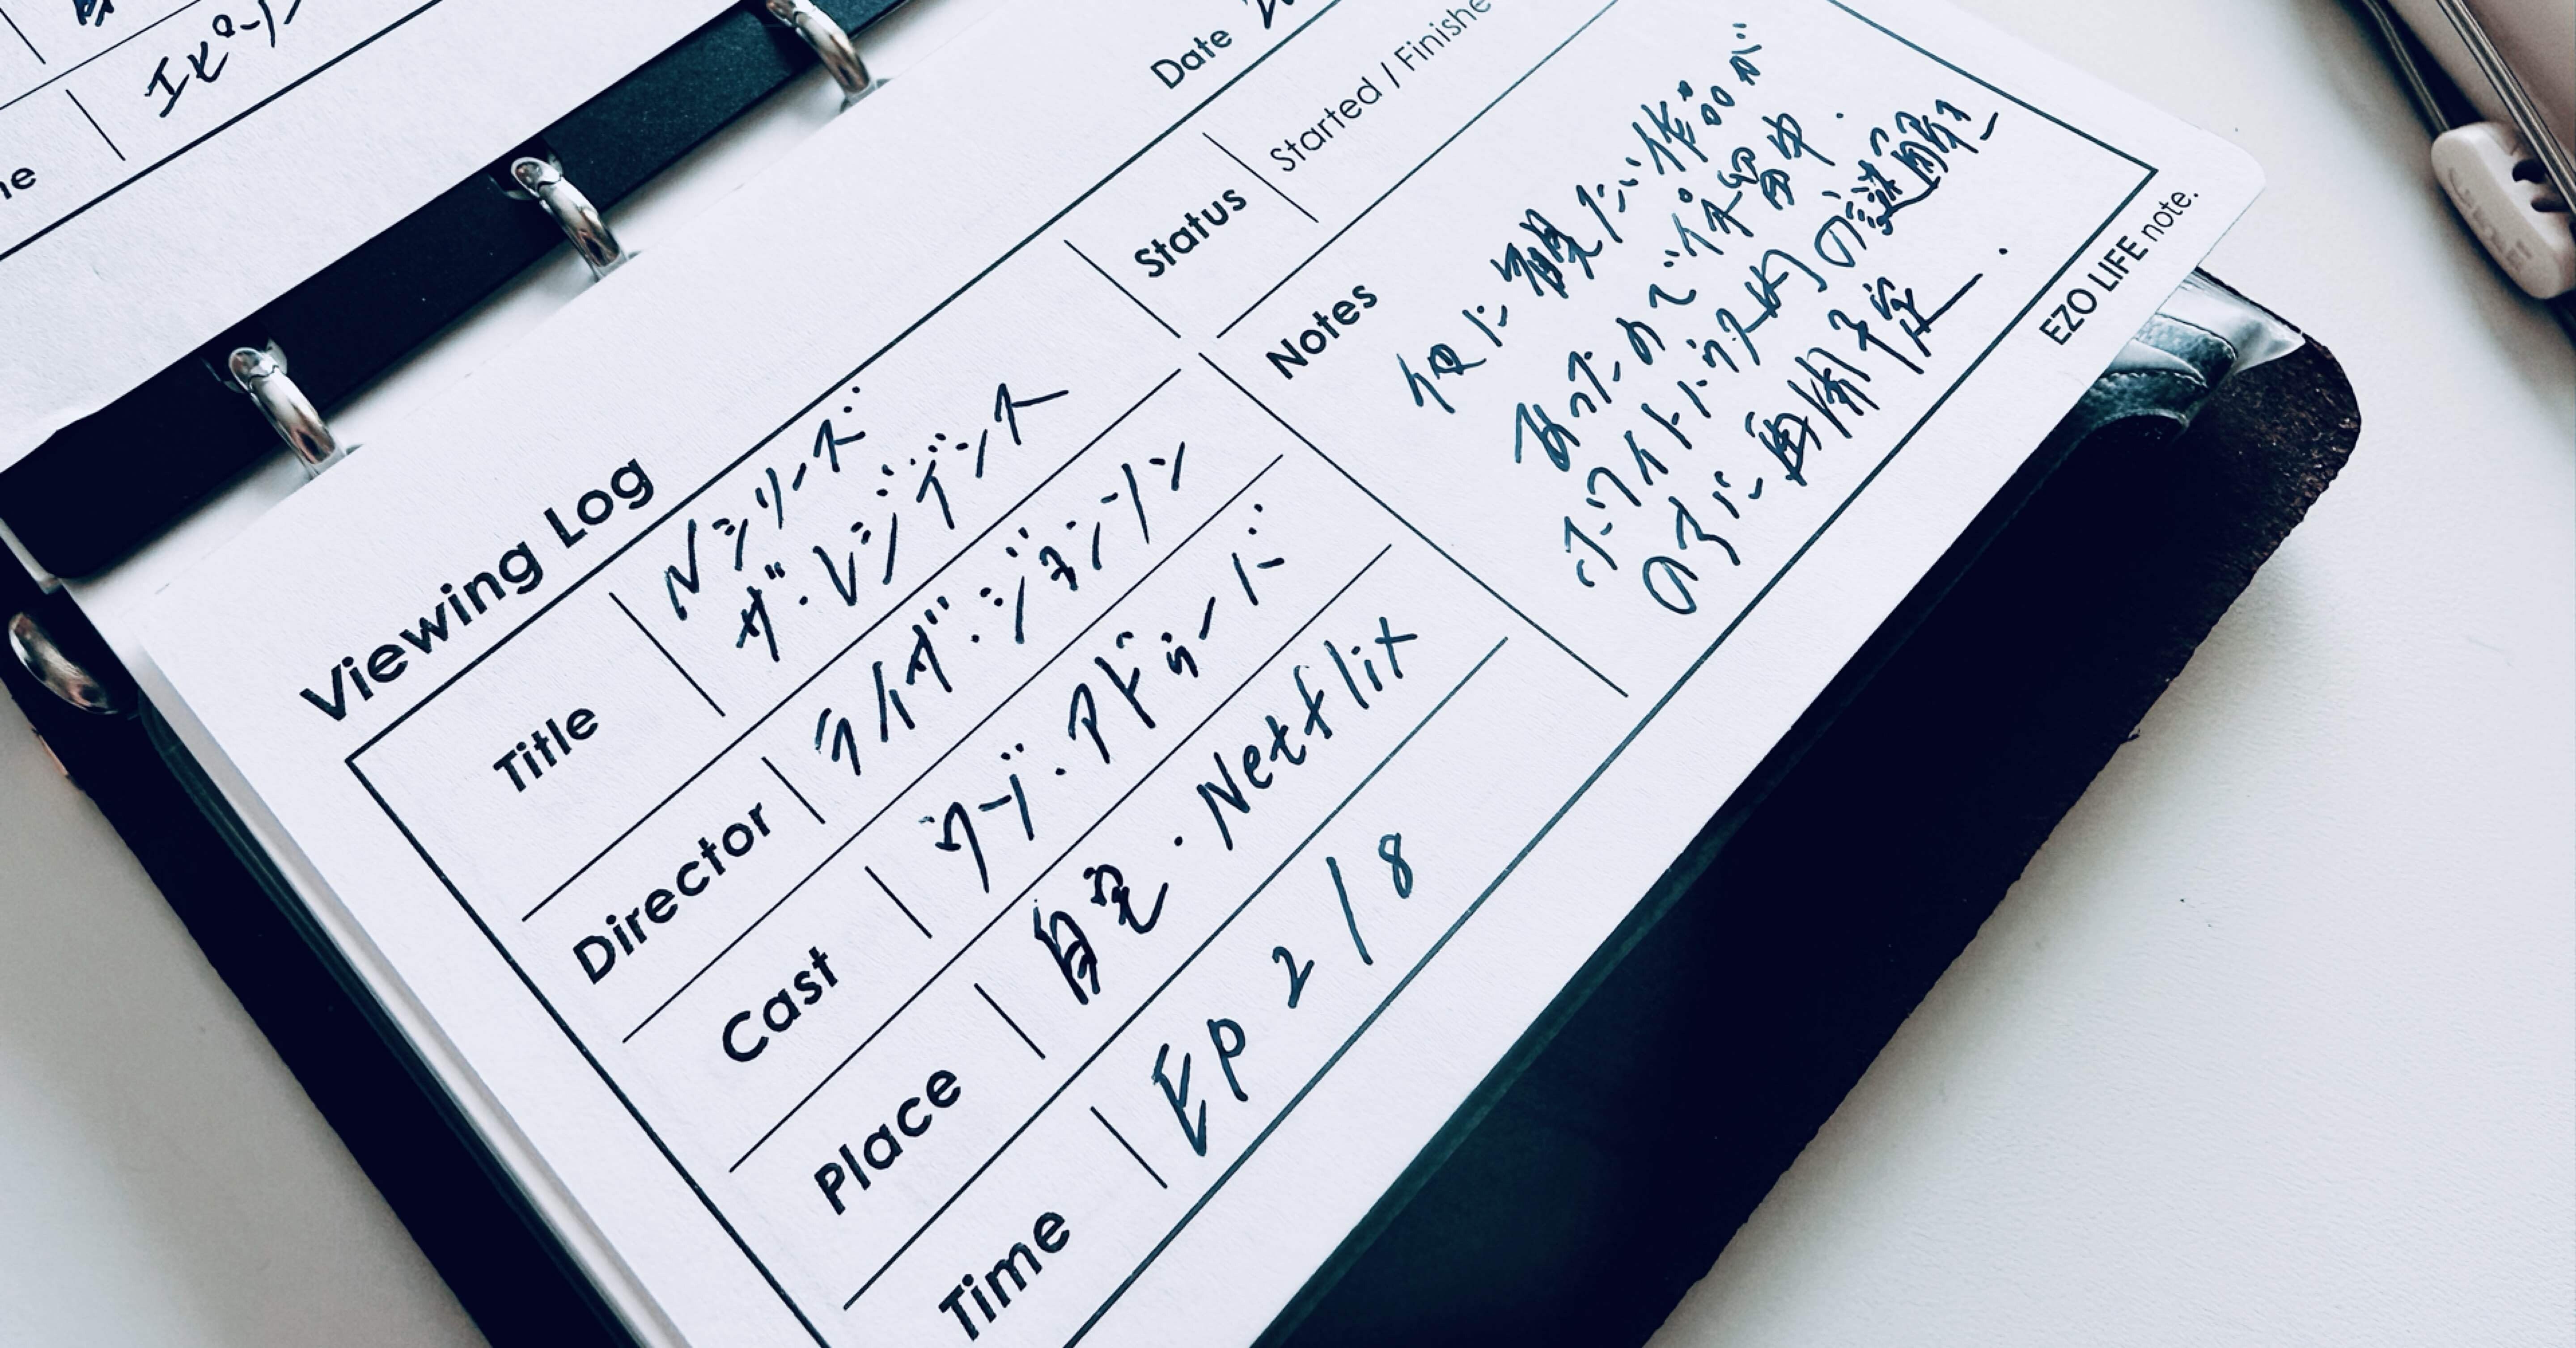 エピソ
ne
Viewing Log
Date
Title
Nシリーズ
ザ・レジデンス
Director
ライザ・ジョンソン
Cast
ウゾ・アドゥーバ
Place
自宅・Netflix
Time
Ep 2/8
Status
Started / Finishe
Notes
仮に観たい作品が
あったので保留中.
ホワイトハウス内の謎解き
のみに再開予定.
EZO LIFE note.